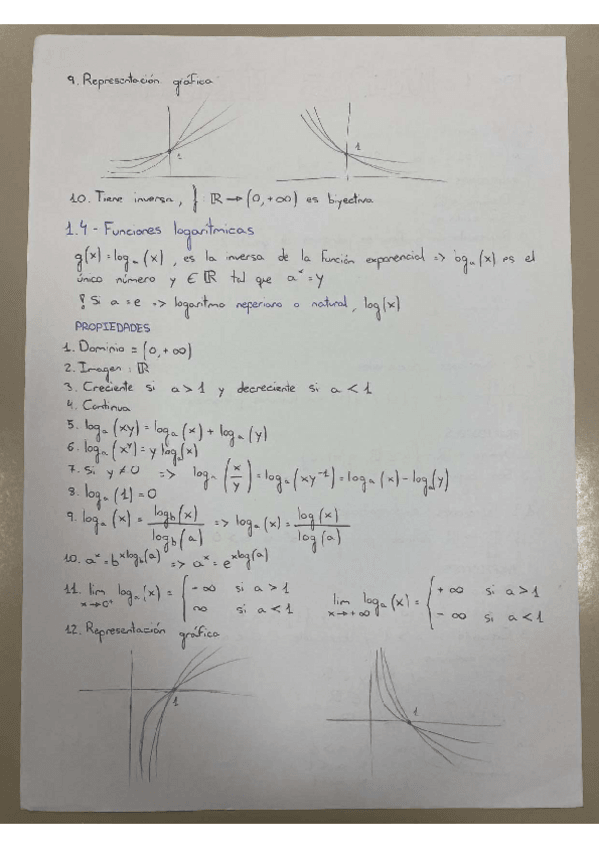 9. Representación gráfica
1
1
10. Tiene inversa, f: ℝ → (0,+∞) es biyectiva
1.4 - Funciones logarítmicas
g(x) = logₐ(x), es la inversa de la función exponencial => logₐ(x) es el
único número y ∈ ℝ tal que aˣ = y
! Si a = e => logaritmo neperiano o natural, log(x)
PROPIEDADES
1. Dominio = (0,+∞)
2. Imagen: ℝ
3. Creciente si a > 1 y decreciente si a < 1
4. Continua
5. logₐ(xy) = logₐ(x) + logₐ(y)
6. logₐ(xʸ) = y logₐ(x)
7. Si y ≠ 0 => logₐ(x/y) = logₐ(xy⁻¹) = logₐ(x) - logₐ(y)
8. logₐ(1) = 0
9. logₐ(x) = log_b(x)/log_b(a) => logₐ(x) = log(x)/log(a)
10. aˣ = b^(x log_b(a)) => aˣ = e^(x log(a))
11. lim x→0⁺ logₐ(x) = { -∞ si a > 1 ; ∞ si a < 1 lim x→+∞ logₐ(x) = { +∞ si a > 1 ; -∞ si a < 1
12. Representación gráfica
1
1